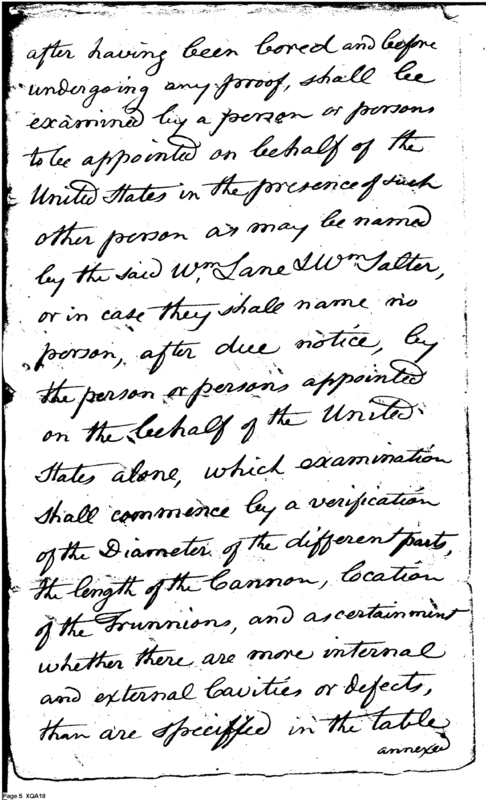 after having been bored and before
undergoing any proof, shall be
examined by a person or persons
to be appointed on behalf of the
United States in the presence of such
other person as may be named
by the said Wm. Lane & Wm Salter,
or in case they shall name no
person, after due notice, by
the person or persons appointed
on the behalf of the United
States alone, which examination
shall commence by a verification
of the Diameter of the different parts,
the length of the Cannon, location
of the Trunnions, and ascertainment
whether there are more internal
and external Cavities or defects,
than are specified in the table
annexed
Page 5 XQA18